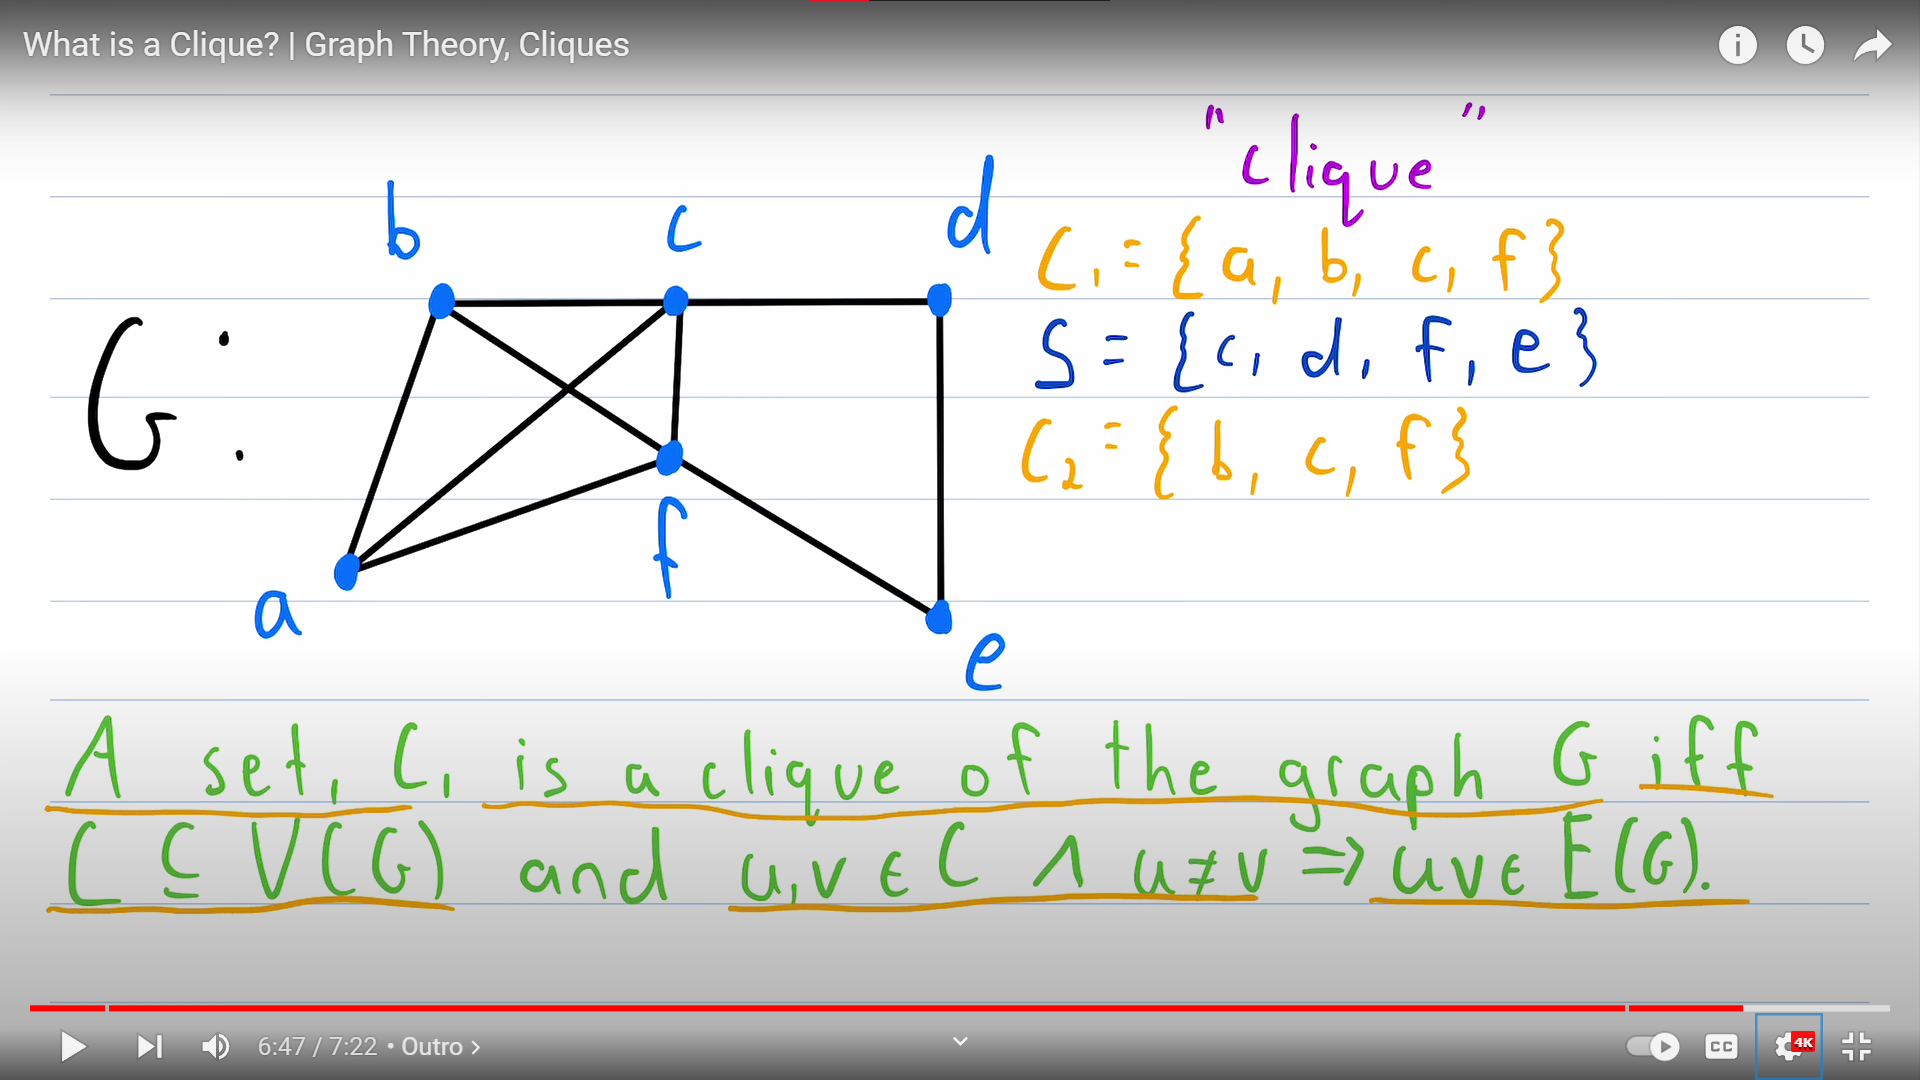 What is a Clique? | Graph Theory, Cliques
"clique"
b
c
d
C₁ = {a, b, c, f}
S = {c, d, f, e}
G:
C₂ = {b, c, f}
f
a
e
A set, C, is a clique of the graph G iff
C ⊆ V(G) and u,v ∈ C ∧ u≠v ⇒ uv∈ E(G).
6:47 / 7:22 • Outro ›
CC
4K